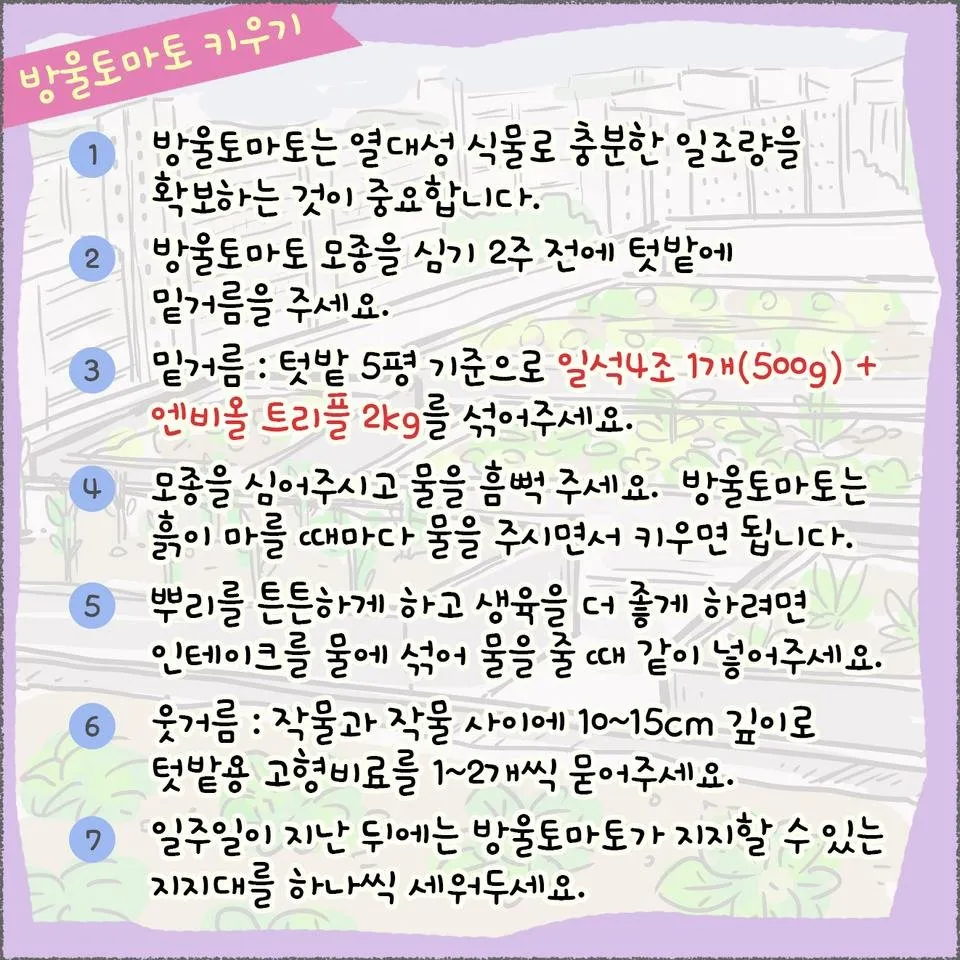 방울토마토 키우기
1 방울토마토는 열대성 식물로 충분한 일조량을
확보하는 것이 중요합니다.
2 방울토마토 모종을 심기 2주 전에 텃밭에
밑거름을 주세요.
3 밑거름 : 텃밭 5평 기준으로 일석4조 1개(500g) +
엔비올 트리플 2kg를 섞어주세요.
4 모종을 심어주시고 물을 흠뻑 주세요. 방울토마토는
흙이 마를 때마다 물을 주시면서 키우면 됩니다.
5 뿌리를 튼튼하게 하고 생육을 더 좋게 하려면
인테이크를 물에 섞어 물을 줄 때 같이 넣어주세요.
6 웃거름 : 작물과 작물 사이에 10~15cm 깊이로
텃밭용 고형비료를 1~2개씩 묻어주세요.
7 일주일이 지난 뒤에는 방울토마토가 지지할 수 있는
지지대를 하나씩 세워두세요.